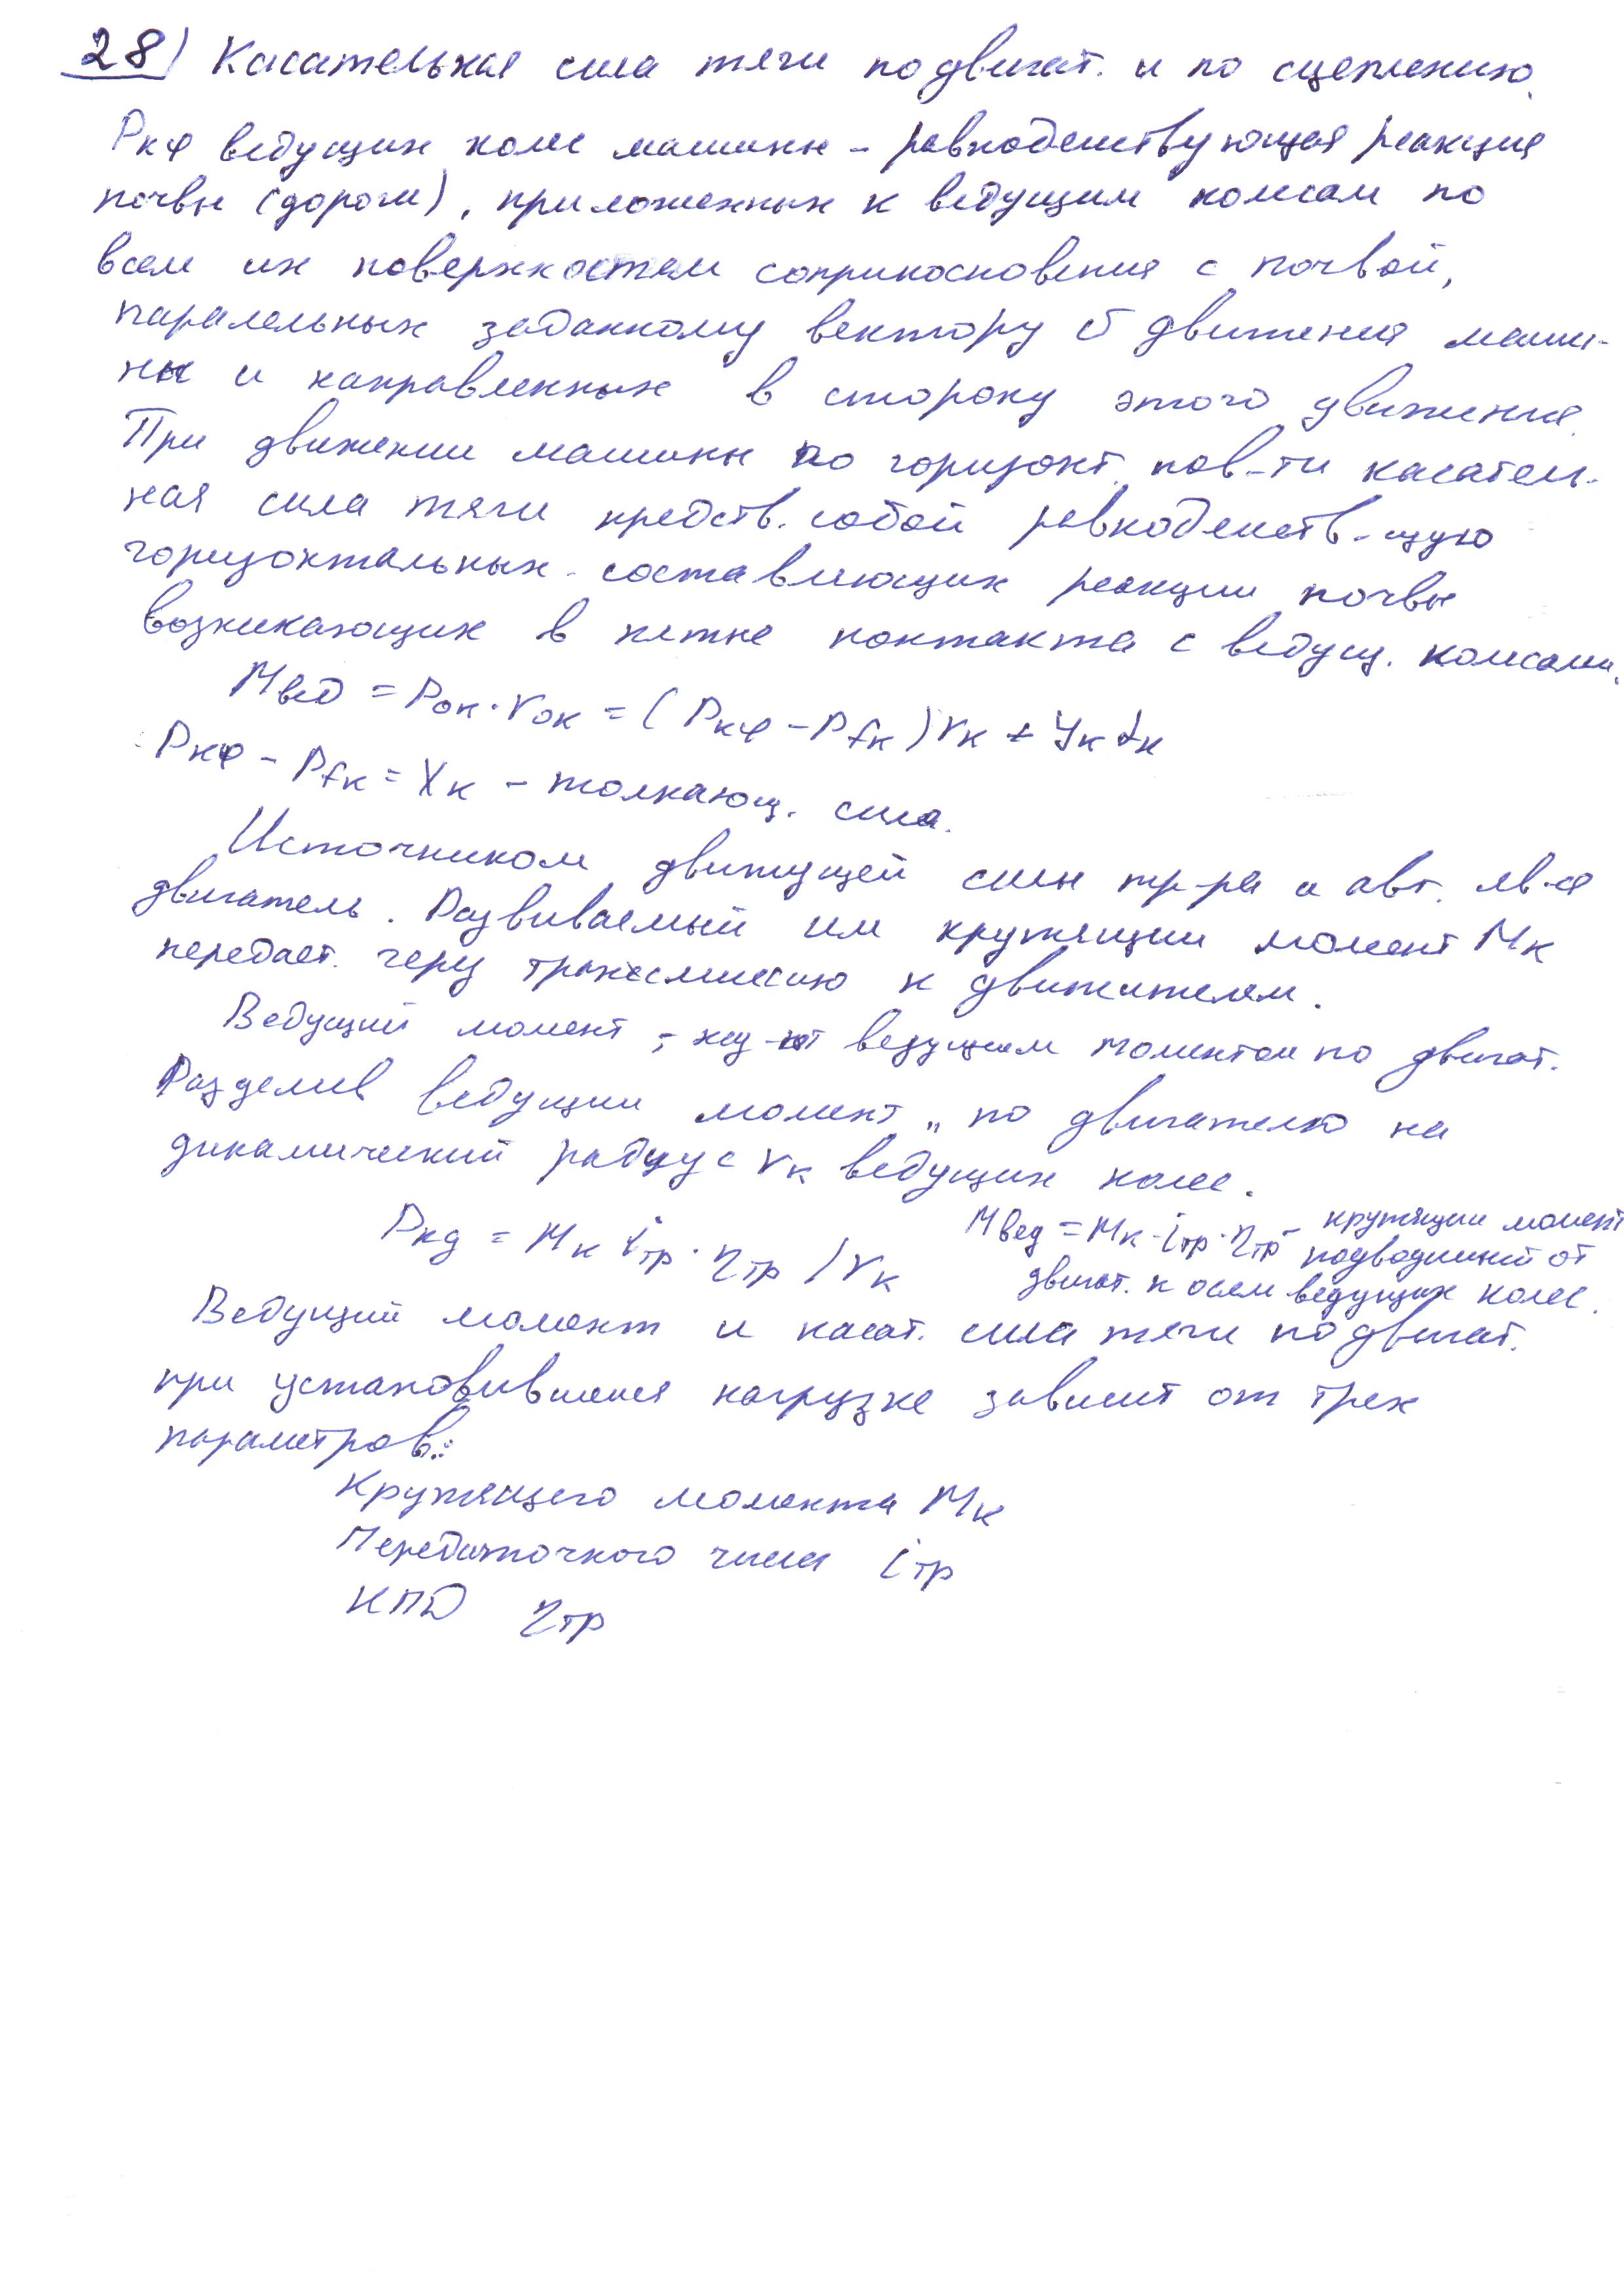 28) Касательная сила тяги по двигат. и по сцеплению.
Pкφ ведущих колес машины - равнодействующая реакция
почвы (дороги), приложенных к ведущим колесам по
всем их поверхностям соприкосновения с почвой,
паралельных заданному вектору υ движения маши-
ны и направленных в сторону этого движения.
При движении машины по горизонт. пов-ти касатель-
ная сила тяги предств. собой равнодейств-щую
горизонтальных составляющих реакции почвы
возникающих в пятне контакта с ведущ. колесами.
Mвед = Pок · rок = (Pкφ - Pfк) rк + Yк αк
Pкφ - Pfк = Xк - толкающ. сила.
Источником движущей силы тр-ра и авт. яв-ся
двигатель. Развиваемый им крутящии момент Mк
передает. через трансмиссию к движителям.
Ведущий момент - наз-ют ведущим моментом по двигат.
Разделив ведущии момент „ по двигателю на
динамический радиус rк ведущих колес.
Pкд = Mк iтр · ηтр / rк
Mвед = Mк · iтр · ηтр - крутящии момент
подводимый от
двигат. к осям ведущих колес.
Ведущий момент и касат. сила тяги по двигат.
при установившемся нагрузке зависит от трех
параметров:
Крутящего момента Mк
Передаточного числа iтр
КПД ηтр